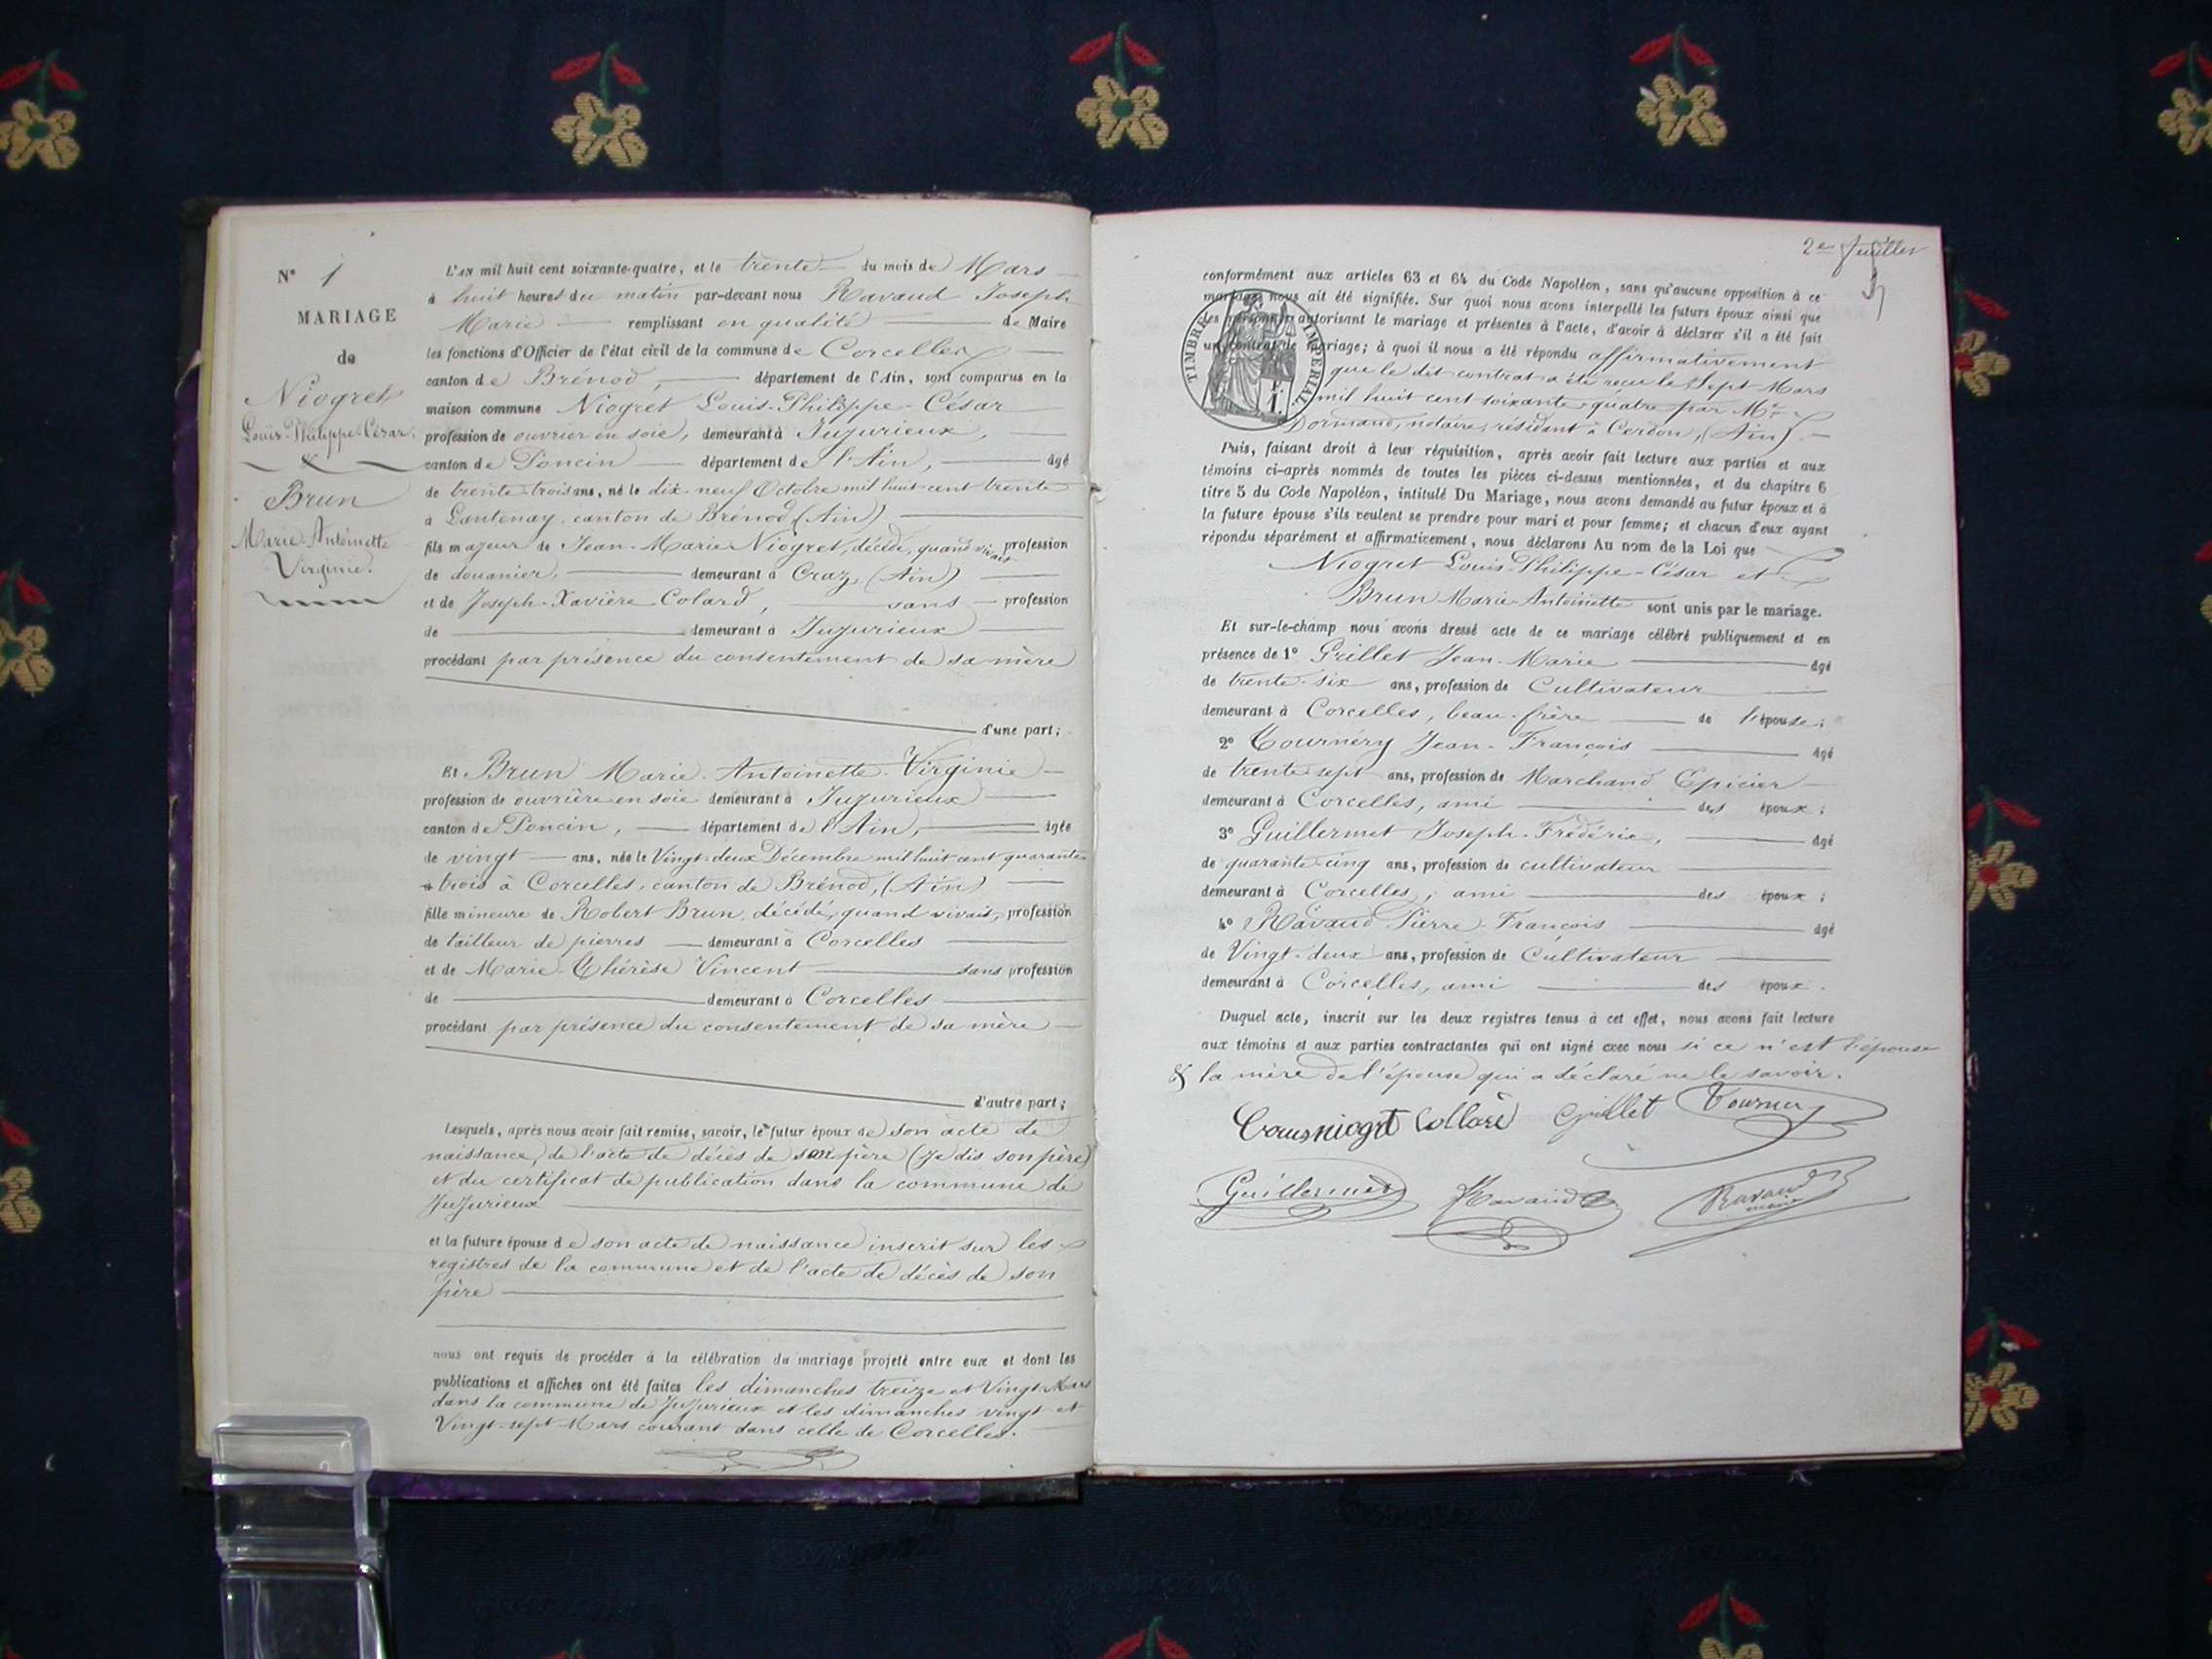 N° 1
MARIAGE
de
Niogret
Louis-Philippe-César
&
Brun
Marie-Antoinette
Virginie.
L'AN mil huit cent soixante-quatre, et le trente du mois de Mars
à huit heures du matin par-devant nous Ravaud Joseph
Marie remplissant en qualité de Maire
les fonctions d'Officier de l'état civil de la commune de Corcelles
canton de Brénod, département de l'Ain, sont comparus en la
maison commune Niogret Louis-Philippe-César
profession de ouvrier en soie, demeurant à Jujurieux,
canton de Poncin département de l'Ain, âgé
de trente-trois ans, né le dix-neuf Octobre mil huit cent trente
à Lantenay, canton de Brénod (Ain)
fils majeur de Jean-Marie Niogret, décédé, quand vivait profession
de douanier, demeurant à Craz, (Ain)
et de Joseph-Xavière Colard, sans profession
de demeurant à Jujurieux
procédant par présence du consentement de sa mère
d'une part;
Et Brun Marie-Antoinette-Virginie
profession de ouvrière en soie demeurant à Jujurieux
canton de Poncin, département de l'Ain, âgée
de vingt ans, née le Vingt-deux Décembre mil huit cent quarante
trois à Corcelles, canton de Brénod, (Ain)
fille mineure de Robert Brun, décédé, quand vivait, profession
de tailleur de pierres demeurant à Corcelles
et de Marie-Thérèse Vincent sans profession
de demeurant à Corcelles
procédant par présence du consentement de sa mère
d'autre part;
Lesquels, après nous avoir fait remise, savoir, le futur époux de son acte de
naissance, de l'acte de décès de son père (je dis son père)
et du certificat de publication dans la commune de
Jujurieux
et la future épouse de son acte de naissance inscrit sur les
registres de la commune et de l'acte de décès de son
père
nous ont requis de procéder à la célébration du mariage projeté entre eux et dont les
publications et affiches ont été faites les dimanches treize et Vingt Mars
dans la commune de Jujurieux et les dimanches vingt et
Vingt-sept Mars courant dans celle de Corcelles.
2e feuillet
conformément aux articles 63 et 64 du Code Napoléon, sans qu'aucune opposition à ce
mariage nous ait été signifiée. Sur quoi nous avons interpellé les futurs époux ainsi que
les personnes autorisant le mariage et présentes à l'acte, d'avoir à déclarer s'il a été fait
un contrat de mariage; à quoi il nous a été répondu affirmativement
TIMBRE IMPERIAL
1
que le dit contrat a été reçu le Sept Mars
mil huit cent soixante-quatre par Me
Dormand, notaire, résidant à Cerdon, (Ain).
Puis, faisant droit à leur réquisition, après avoir fait lecture aux parties et aux
témoins ci-après nommés de toutes les pièces ci-dessus mentionnées, et du chapitre 6
titre 5 du Code Napoléon, intitulé Du Mariage, nous avons demandé au futur époux et à
la future épouse s'ils veulent se prendre pour mari et pour femme; et chacun d'eux ayant
répondu séparément et affirmativement, nous déclarons Au nom de la Loi que
Niogret Louis-Philippe-César et
Brun Marie-Antoinette sont unis par le mariage.
Et sur-le-champ nous avons dressé acte de ce mariage célébré publiquement et en
présence de 1° Grillet Jean-Marie âgé
de trente-six ans, profession de Cultivateur
demeurant à Corcelles, beau-frère de l'épouse;
2° Tournéry Jean-François âgé
de trente-sept ans, profession de Marchand Epicier
demeurant à Corcelles, ami des époux;
3° Guillermet Joseph-Frédéric, âgé
de quarante-cinq ans, profession de cultivateur
demeurant à Corcelles, ami des époux;
4° Ravaud Pierre-François âgé
de Vingt-deux ans, profession de Cultivateur
demeurant à Corcelles, ami des époux.
Duquel acte, inscrit sur les deux registres tenus à cet effet, nous avons fait lecture
aux témoins et aux parties contractantes qui ont signé avec nous si ce n'est l'épouse
& la mère de l'épouse qui a déclaré ne le savoir.
niogret Collard Grillet Tournery
Guillermet Ravaud Ravaud
maire